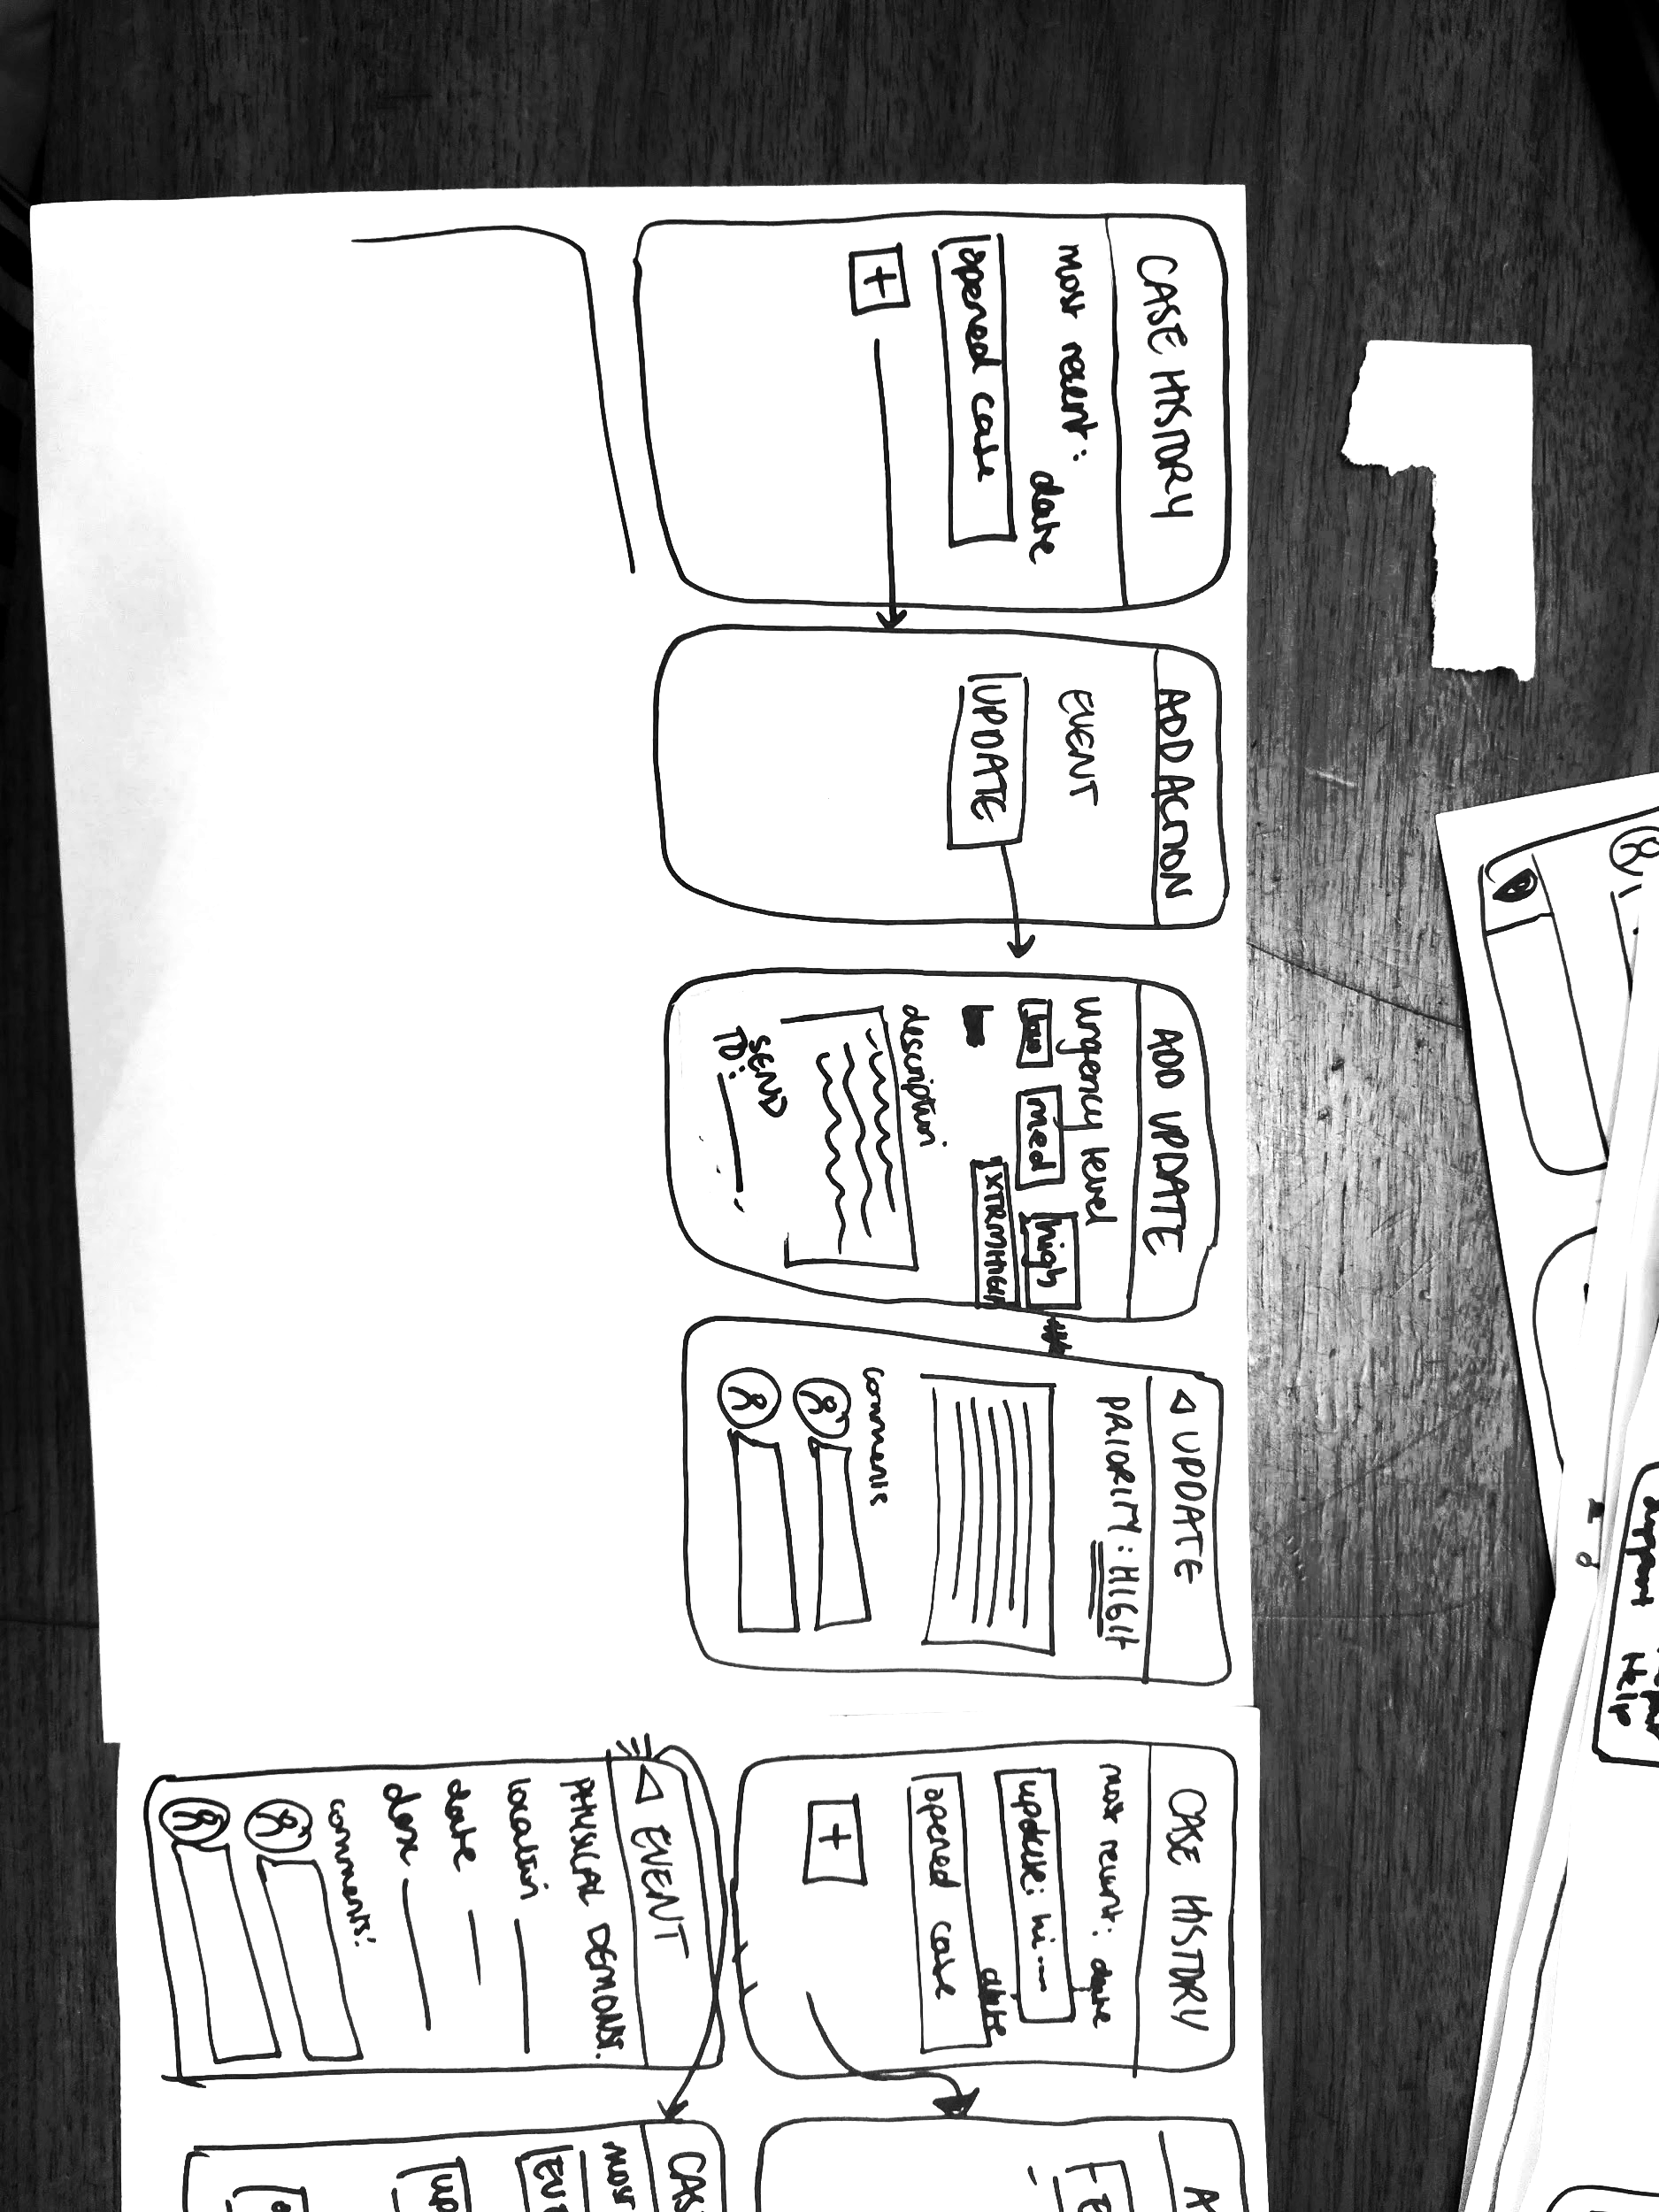 CASE HISTORY
most recent:
date
opened case
+
ADD ACTION
EVENT
UPDATE
ADD UPDATE
urgency level
low med high
XTRMHIGH
description
SEND
TO:
UPDATE
PRIORITY: HIGH
comments
CASE HISTORY
most recent: date
update: hi
date
opened case
+
EVENT
PHYSICAL DEMONS.
location
date
desc
comments:
CAS
mos
EVE
up
A
E
support
Help